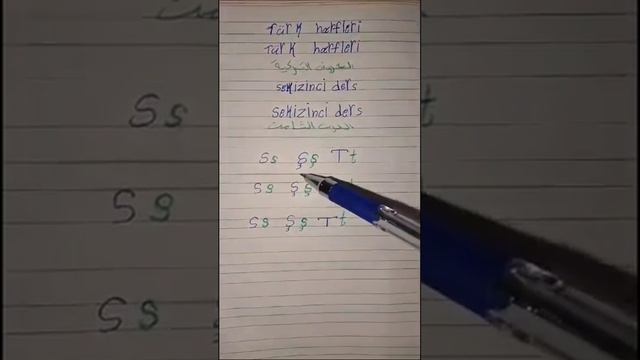 Türk harfleri
Türk harfleri
الحروف التركية
sekizinci ders
sekizinci ders
الدرس الثامن
Ss Şş Tt
Ss Şş t
Ss Şş Tt